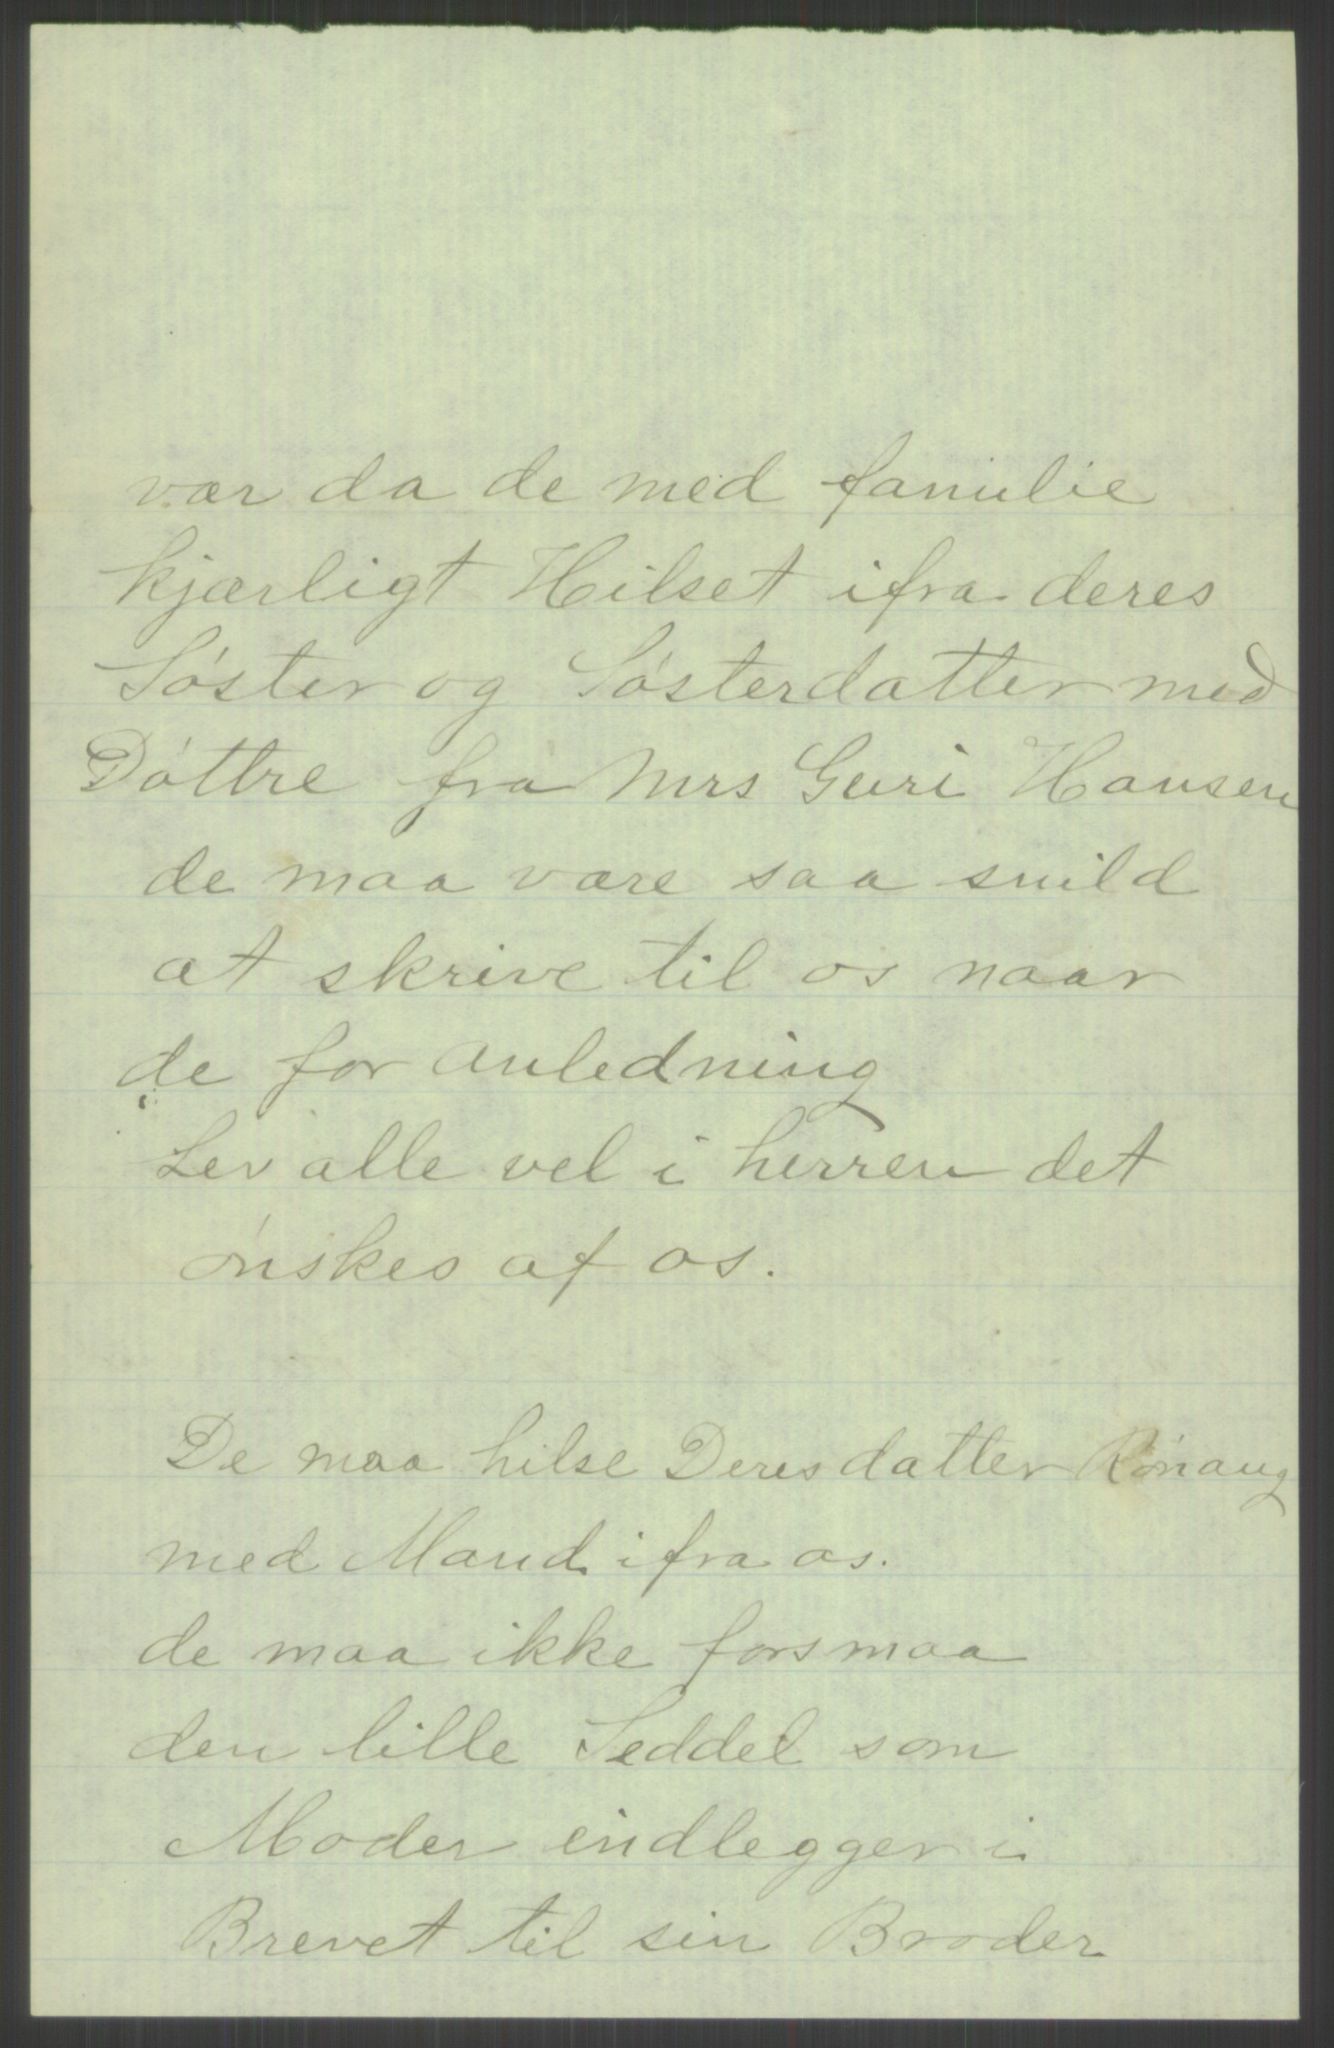 vær da de med familie
kjærligt Hilset ifra deres
Söster og Sösterdatter med
Döttre fra Mrs Guri Hansen
de maa være saa snild
at skrive til os naar
de for anledning
Lev alle vel i herren det
önskes af os.
De maa hilse Deres datter Rönaug
med Mand ifra os.
de maa ikke forsmaa
den lille Seddel som
Moder indlegger i
Brevet til sin Broder